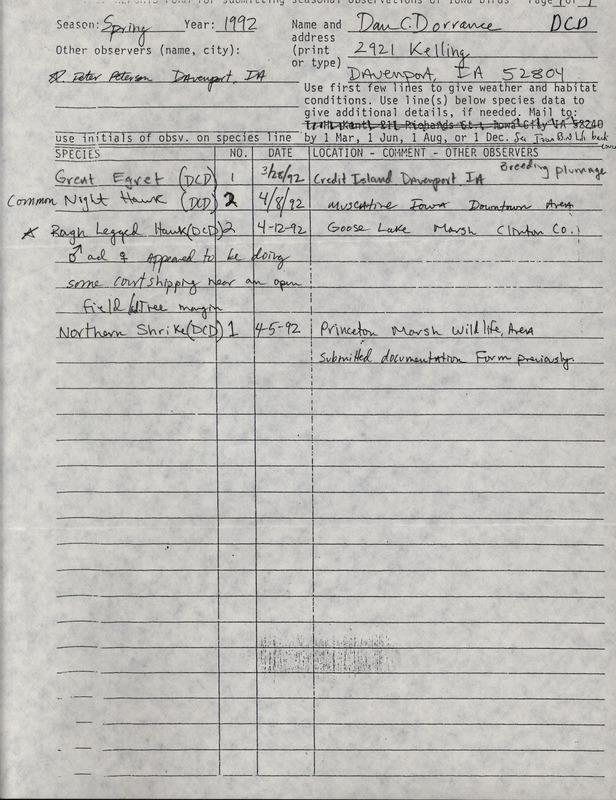 for submitting seasonal observations of Iowa birds Page 1 of 1
Season: Spring Year: 1992 Name and Dan C. Dorrance DCD
address
Other observers (name, city): (print 2921 Kelling
or type)
Peter Petersen Davenport, IA Davenport, IA 52804
Use first few lines to give weather and habitat
conditions. Use line(s) below species data to
give additional details, if needed. Mail to:
T.H. Kent, 211 Richards St., Iowa City IA 52240
use initials of obsv. on species line by 1 Mar, 1 Jun, 1 Aug, or 1 Dec.
SPECIES NO. DATE LOCATION - COMMENT - OTHER OBSERVERS
Great Egret (DCD) 1 3/28/92 Credit Island Davenport IA Breeding plumage
Common Night Hawk (DCD) 2 4/8/92 Muscatine Iowa Downtown Area
* Rough Legged Hawk (DCD) 2 4-12-92 Goose Lake Marsh Clinton Co.
♂ ad ♀ Appeared to be doing
some courtshipping near an open
field / Tree margin
Northern Shrike (DCD) 1 4-5-92 Princeton Marsh Wildlife, Area
Submitted documentation Form previously.